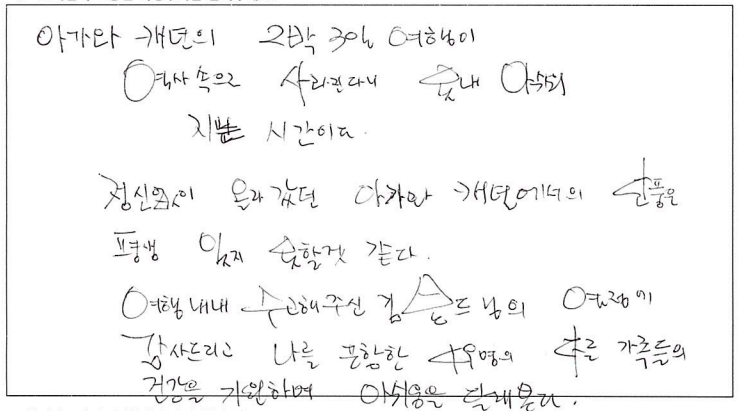 아가와 캐년의 2박 3일 여행이
역사 속으로 사라진다니 못내 아쉬워
지는 시간이다.
정신없이 올라 갔던 아가와 캐년에서의 단풍은
평생 잊지 못할것 같다.
여행 내내 수고해주신 김 드님의 여정에
감사드리고 나를 포함한 우명의 가족들의
건강을 기원하며 아쉬움을 달래본다.